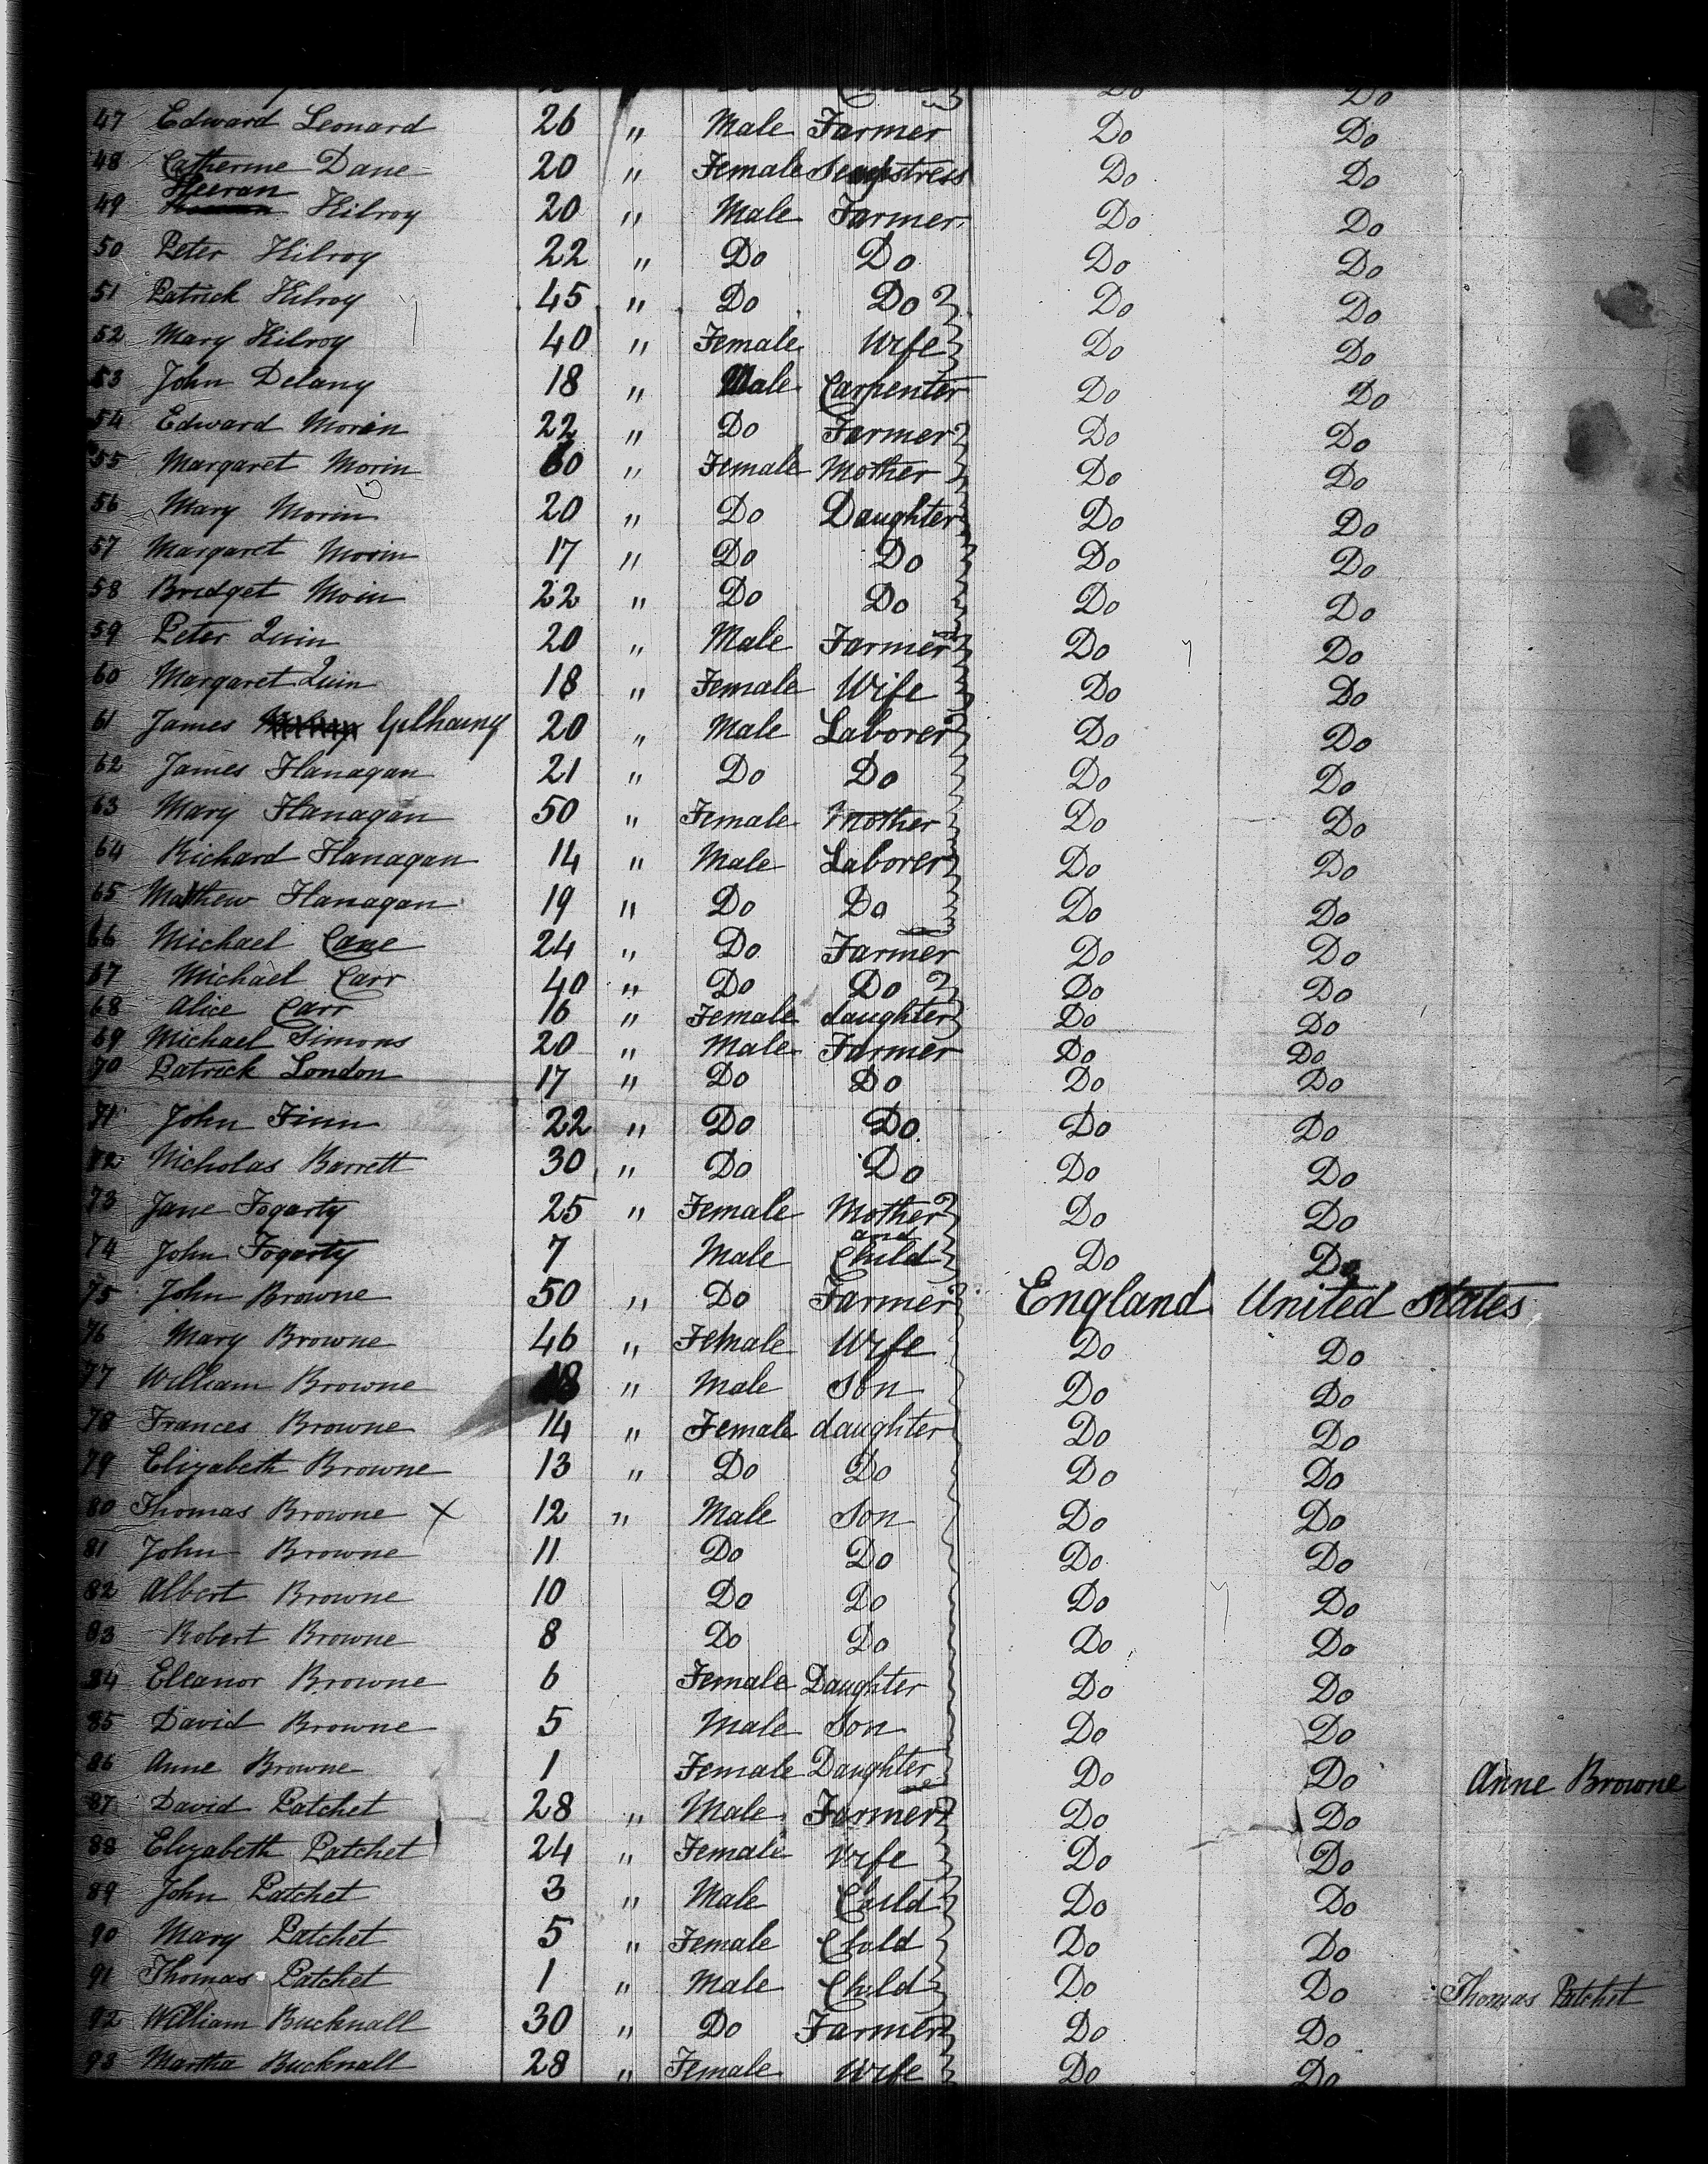 Do Do
47 Edward Leonard 26 " Male Farmer Do Do
48 Catherine Dane 20 " Female Seamstress Do Do
Heeran
49 Kilroy 20 " Male Farmer Do Do
50 Peter Kilroy 22 " Do Do Do Do
51 Patrick Kilroy 45 " Do Do Do Do
52 Mary Kilroy 40 " Female Wife Do Do
53 John Delany 18 " Male Carpenter Do Do
54 Edward Morin 22 " Do Farmer Do Do
55 Margaret Morin 60 " Female Mother Do Do
56 Mary Morin 20 " Do Daughter Do Do
57 Margaret Morin 17 " Do Do Do Do
58 Bridget Morin 22 " Do Do Do Do
59 Peter Quin 20 " Male Farmer Do Do
60 Margaret Quin 18 " Female Wife Do Do
61 James Gilhany 20 " Male Laborer Do Do
62 James Flanagan 21 " Do Do Do Do
63 Mary Flanagan 50 " Female Mother Do Do
64 Richard Flanagan 14 " Male Laborer Do Do
65 Mathew Flanagan 19 " Do Do Do Do
66 Michael Cane 24 " Do Farmer Do Do
67 Michael Carr 40 " Do Do Do Do
68 Alice Carr 16 " Female daughter Do Do
69 Michael Simons 20 " Male Farmer Do Do
70 Patrick London 17 " Do Do Do Do
71 John Finn 22 " Do Do Do Do
72 Nicholas Barrett 30 " Do Do Do Do
73 Jane Fogarty 25 " Female Mother Do Do
and
74 John Fogarty 7 Male Child Do Do
75 John Browne 50 " Do Farmer England United States
76 Mary Browne 46 " Female Wife Do Do
77 William Browne 18 " Male Son Do Do
78 Frances Browne 14 " Female daughter Do Do
79 Elizabeth Browne 13 " Do Do Do Do
80 Thomas Browne X 12 " Male Son Do Do
81 John Browne 11 Do Do Do Do
82 Albert Browne 10 Do Do Do Do
83 Robert Browne 8 Do Do Do Do
84 Eleanor Browne 6 Female Daughter Do Do
85 David Browne 5 Male Son Do Do
86 Anne Browne 1 Female Daughter Do Do Anne Browne
87 David Patchet 28 " Male Farmer Do Do
88 Elizabeth Patchet 24 " Female Wife Do Do
89 John Patchet 3 " Male Child Do Do
90 Mary Patchet 5 " Female Child Do Do
91 Thomas Patchet 1 " Male Child Do Do Thomas Patchet
92 William Bucknall 30 " Do Farmer Do Do
93 Martha Bucknall 28 " Female Wife Do Do